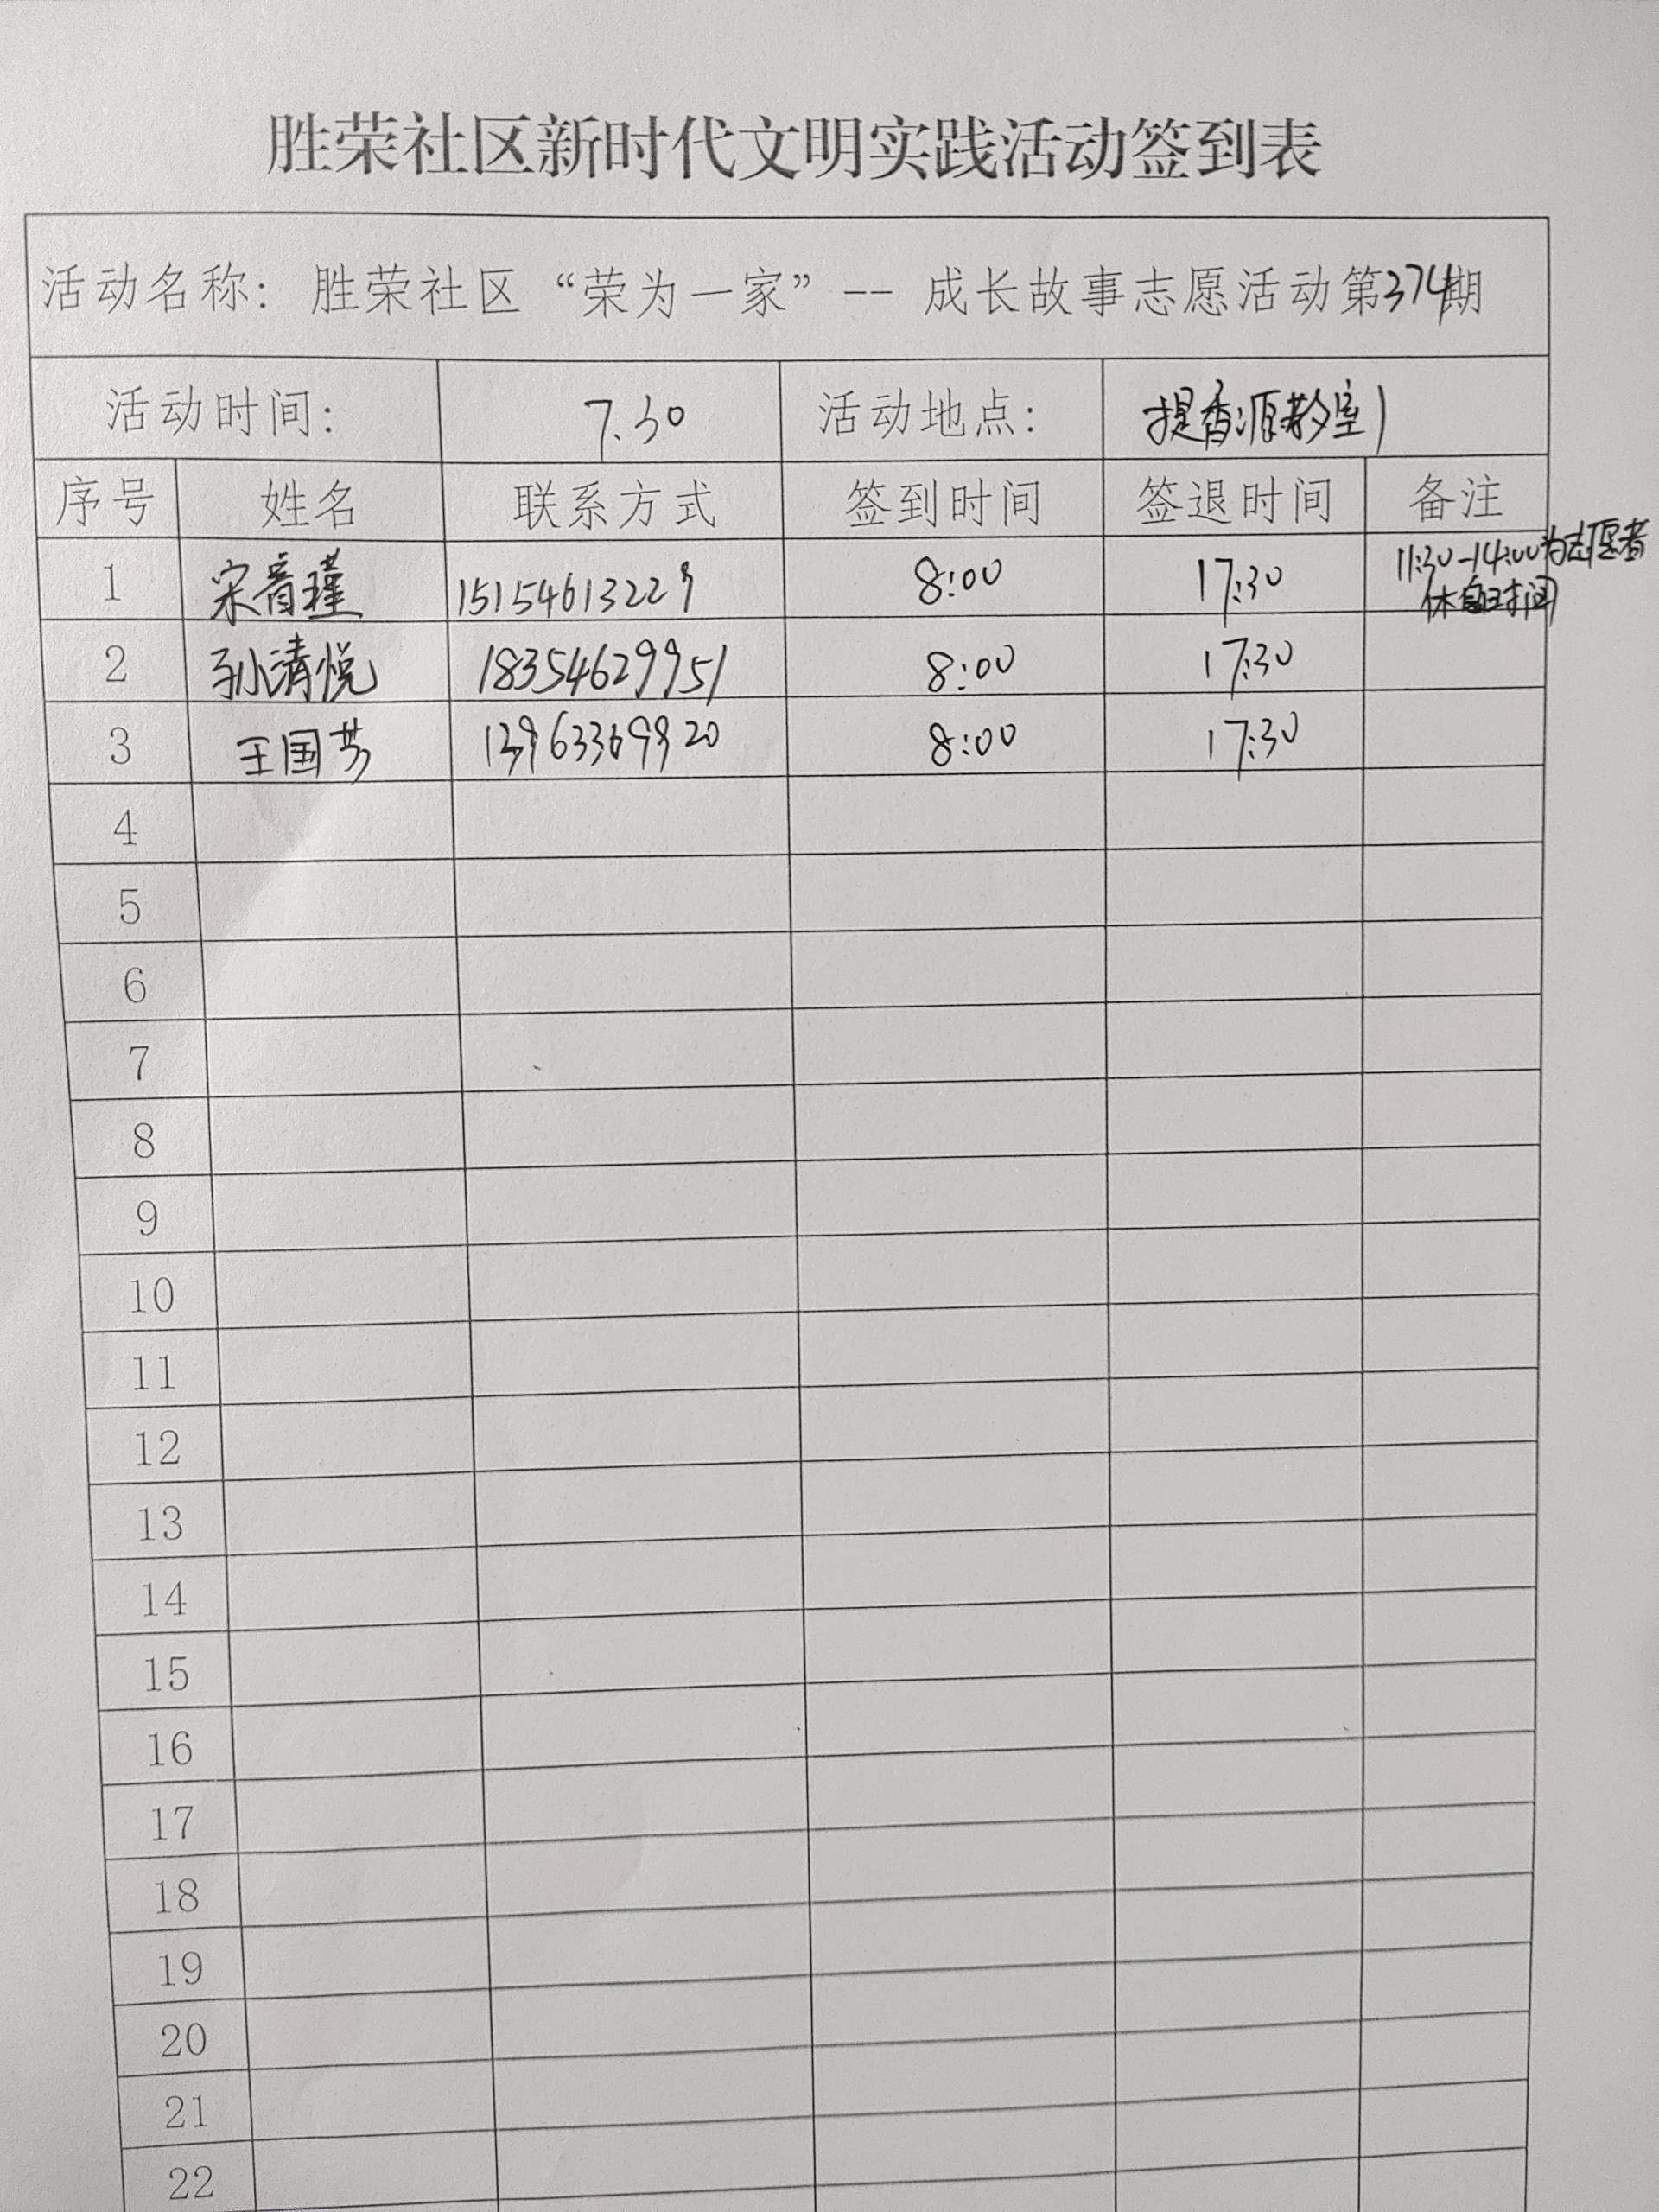 胜荣社区新时代文明实践活动签到表
活动名称：胜荣社区“荣为一家”--成长故事志愿活动第374期
活动时间： 7.30 活动地点： 提香源教室1
序号 姓名 联系方式 签到时间 签退时间 备注
1 宋音瑾 15154613229 8:00 17:30 11:30-14:00为志愿者
休息时间
2 孙清悦 18354629951 8:00 17:30
3 王国芳 8:00 17:30
4
5
6
7
8
9
10
11
12
13
14
15
16
17
18
19
20
21
22